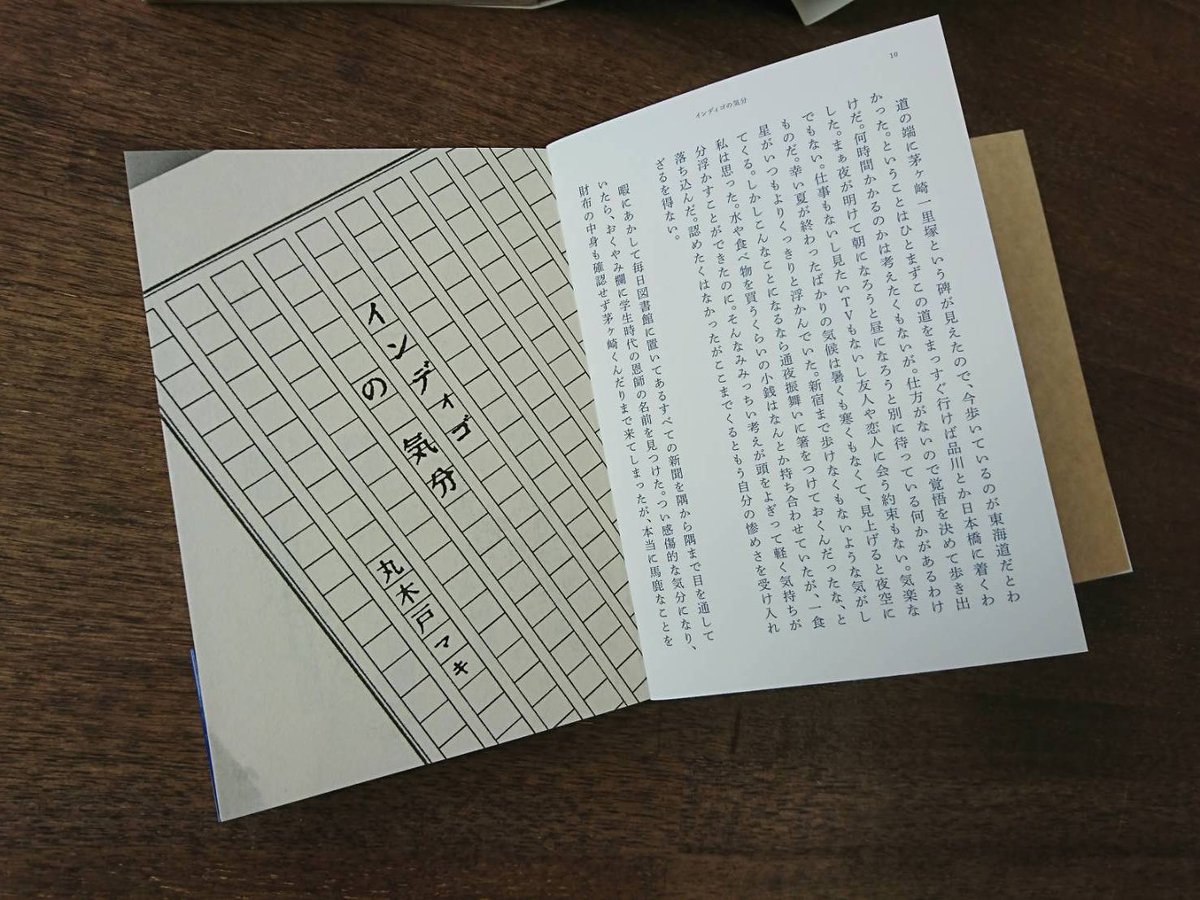 10
インディゴの気分
道の端に茅ヶ崎一里塚という碑が見えたので、今歩いているのが東海道だとわ
かった。ということはひとまずこの道をまっすぐ行けば品川とか日本橋に着くわ
けだ。何時間かかるのかは考えたくもないが。仕方がないので覚悟を決めて歩き出
した。まぁ夜が明けて朝になろうと昼になろうと別に待っている何かがあるわけ
でもない。仕事もないし見たいTVもないし友人や恋人に会う約束もない。気楽な
ものだ。幸い夏が終わったばかりの気候は暑くも寒くもなくて、見上げると夜空に
星がいつもよりくっきりと浮かんでいた。新宿まで歩けなくもないような気がし
てくる。しかしこんなことになるなら通夜振舞いに箸をつけておくんだったな、と
私は思った。水や食べ物を買うくらいの小銭はなんとか持ち合わせていたが、一食
分浮かすことができたのに。そんなみみっちい考えが頭をよぎって軽く気持ちが
落ち込んだ。認めたくはなかったがここまでくるともう自分の惨めさを受け入れ
ざるを得ない。
暇にあかして毎日図書館に置いてあるすべての新聞を隅から隅まで目を通して
いたら、おくやみ欄に学生時代の恩師の名前を見つけた。つい感傷的な気分になり、
財布の中身も確認せず茅ヶ崎くんだりまで来てしまったが、本当に馬鹿なことを
インディゴ
の気分
丸木戸マキ